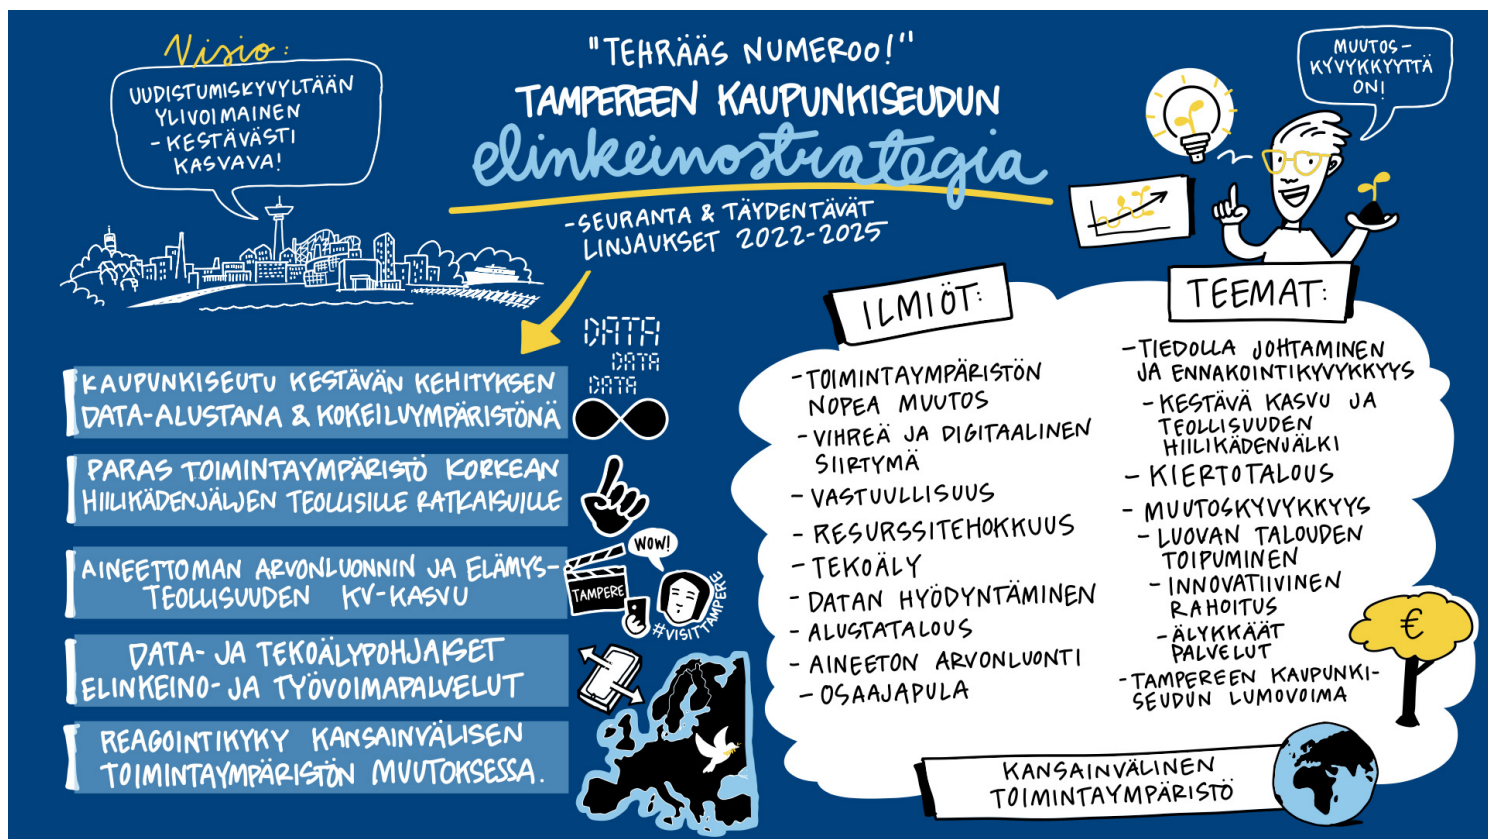 Visio:
UUDISTUMISKYVYLTÄÄN
YLIVOIMAINEN
- KESTÄVÄSTI
KASVAVA!
"TEHRÄÄS NUMEROO!"
TAMPEREEN KAUPUNKISEUDUN
elinkeinostrategia
- SEURANTA & TÄYDENTÄVÄT
LINJAUKSET 2022-2025
MUUTOS-
KYVYKKYYTTÄ
ON!
DATA
DATA
DATA
KAUPUNKISEUTU KESTÄVÄN KEHITYKSEN
DATA-ALUSTANA & KOKEILUYMPÄRISTÖNÄ
PARAS TOIMINTAYMPÄRISTÖ KORKEAN
HIILIKÄDENJÄLJEN TEOLLISILLE RATKAISUILLE
AINEETTOMAN ARVONLUONNIN JA ELÄMYS-
TEOLLISUUDEN KV-KASVU
WOW!
TAMPERE
#VISITTAMPERE
DATA- JA TEKOÄLYPOHJAISET
ELINKEINO- JA TYÖVOIMAPALVELUT
REAGOINTIKYKY KANSAINVÄLISEN
TOIMINTAYMPÄRISTÖN MUUTOKSESSA.
ILMIÖT:
- TOIMINTAYMPÄRISTÖN
NOPEA MUUTOS
- VIHREÄ JA DIGITAALINEN
SIIRTYMÄ
- VASTUULLISUUS
- RESURSSITEHOKKUUS
- TEKOÄLY
- DATAN HYÖDYNTÄMINEN
- ALUSTATALOUS
- AINEETON ARVONLUONTI
- OSAAJAPULA
TEEMAT:
- TIEDOLLA JOHTAMINEN
JA ENNAKOINTIKYVYKKYYS
- KESTÄVÄ KASVU JA
TEOLLISUUDEN
HIILIKÄDENJÄLKI
- KIERTOTALOUS
- MUUTOSKYVYKKYYS
- LUOVAN TALOUDEN
TOIPUMINEN
- INNOVATIIVINEN
RAHOITUS
- ÄLYKKÄÄT
PALVELUT
- TAMPEREEN KAUPUNKI-
SEUDUN LUMOVOIMA
€
KANSAINVÄLINEN
TOIMINTAYMPÄRISTÖ